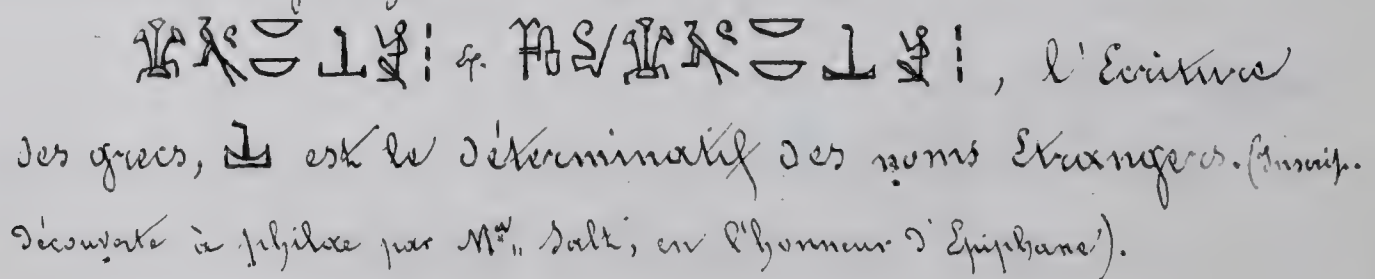 , l'Ecriture
des grecs, est le déterminatif des noms Etrangers. (Inscrip.
découverte à philae par Mr. Salt, en l'honneur d'Epiphane).